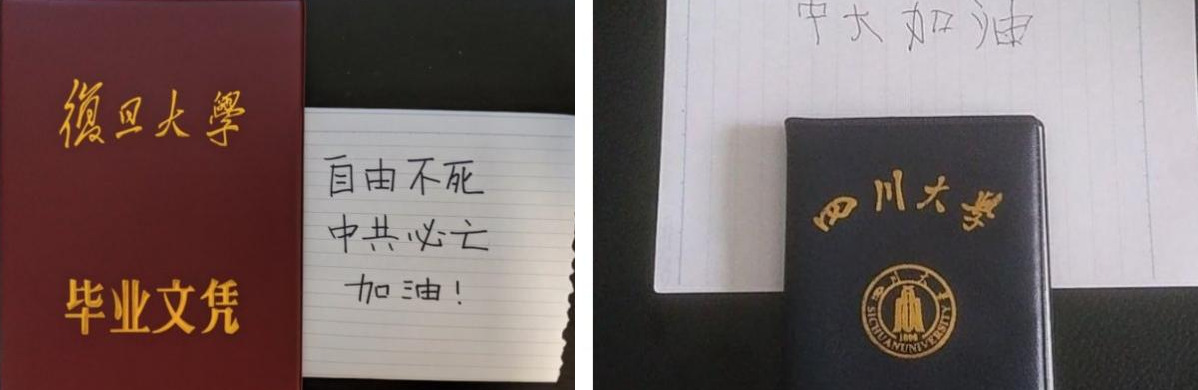 復旦大學
毕业文凭
自由不死
中共必亡
加油!
中大加油
四川大學
四川大学
SICHUAN UNIVERSITY
1896